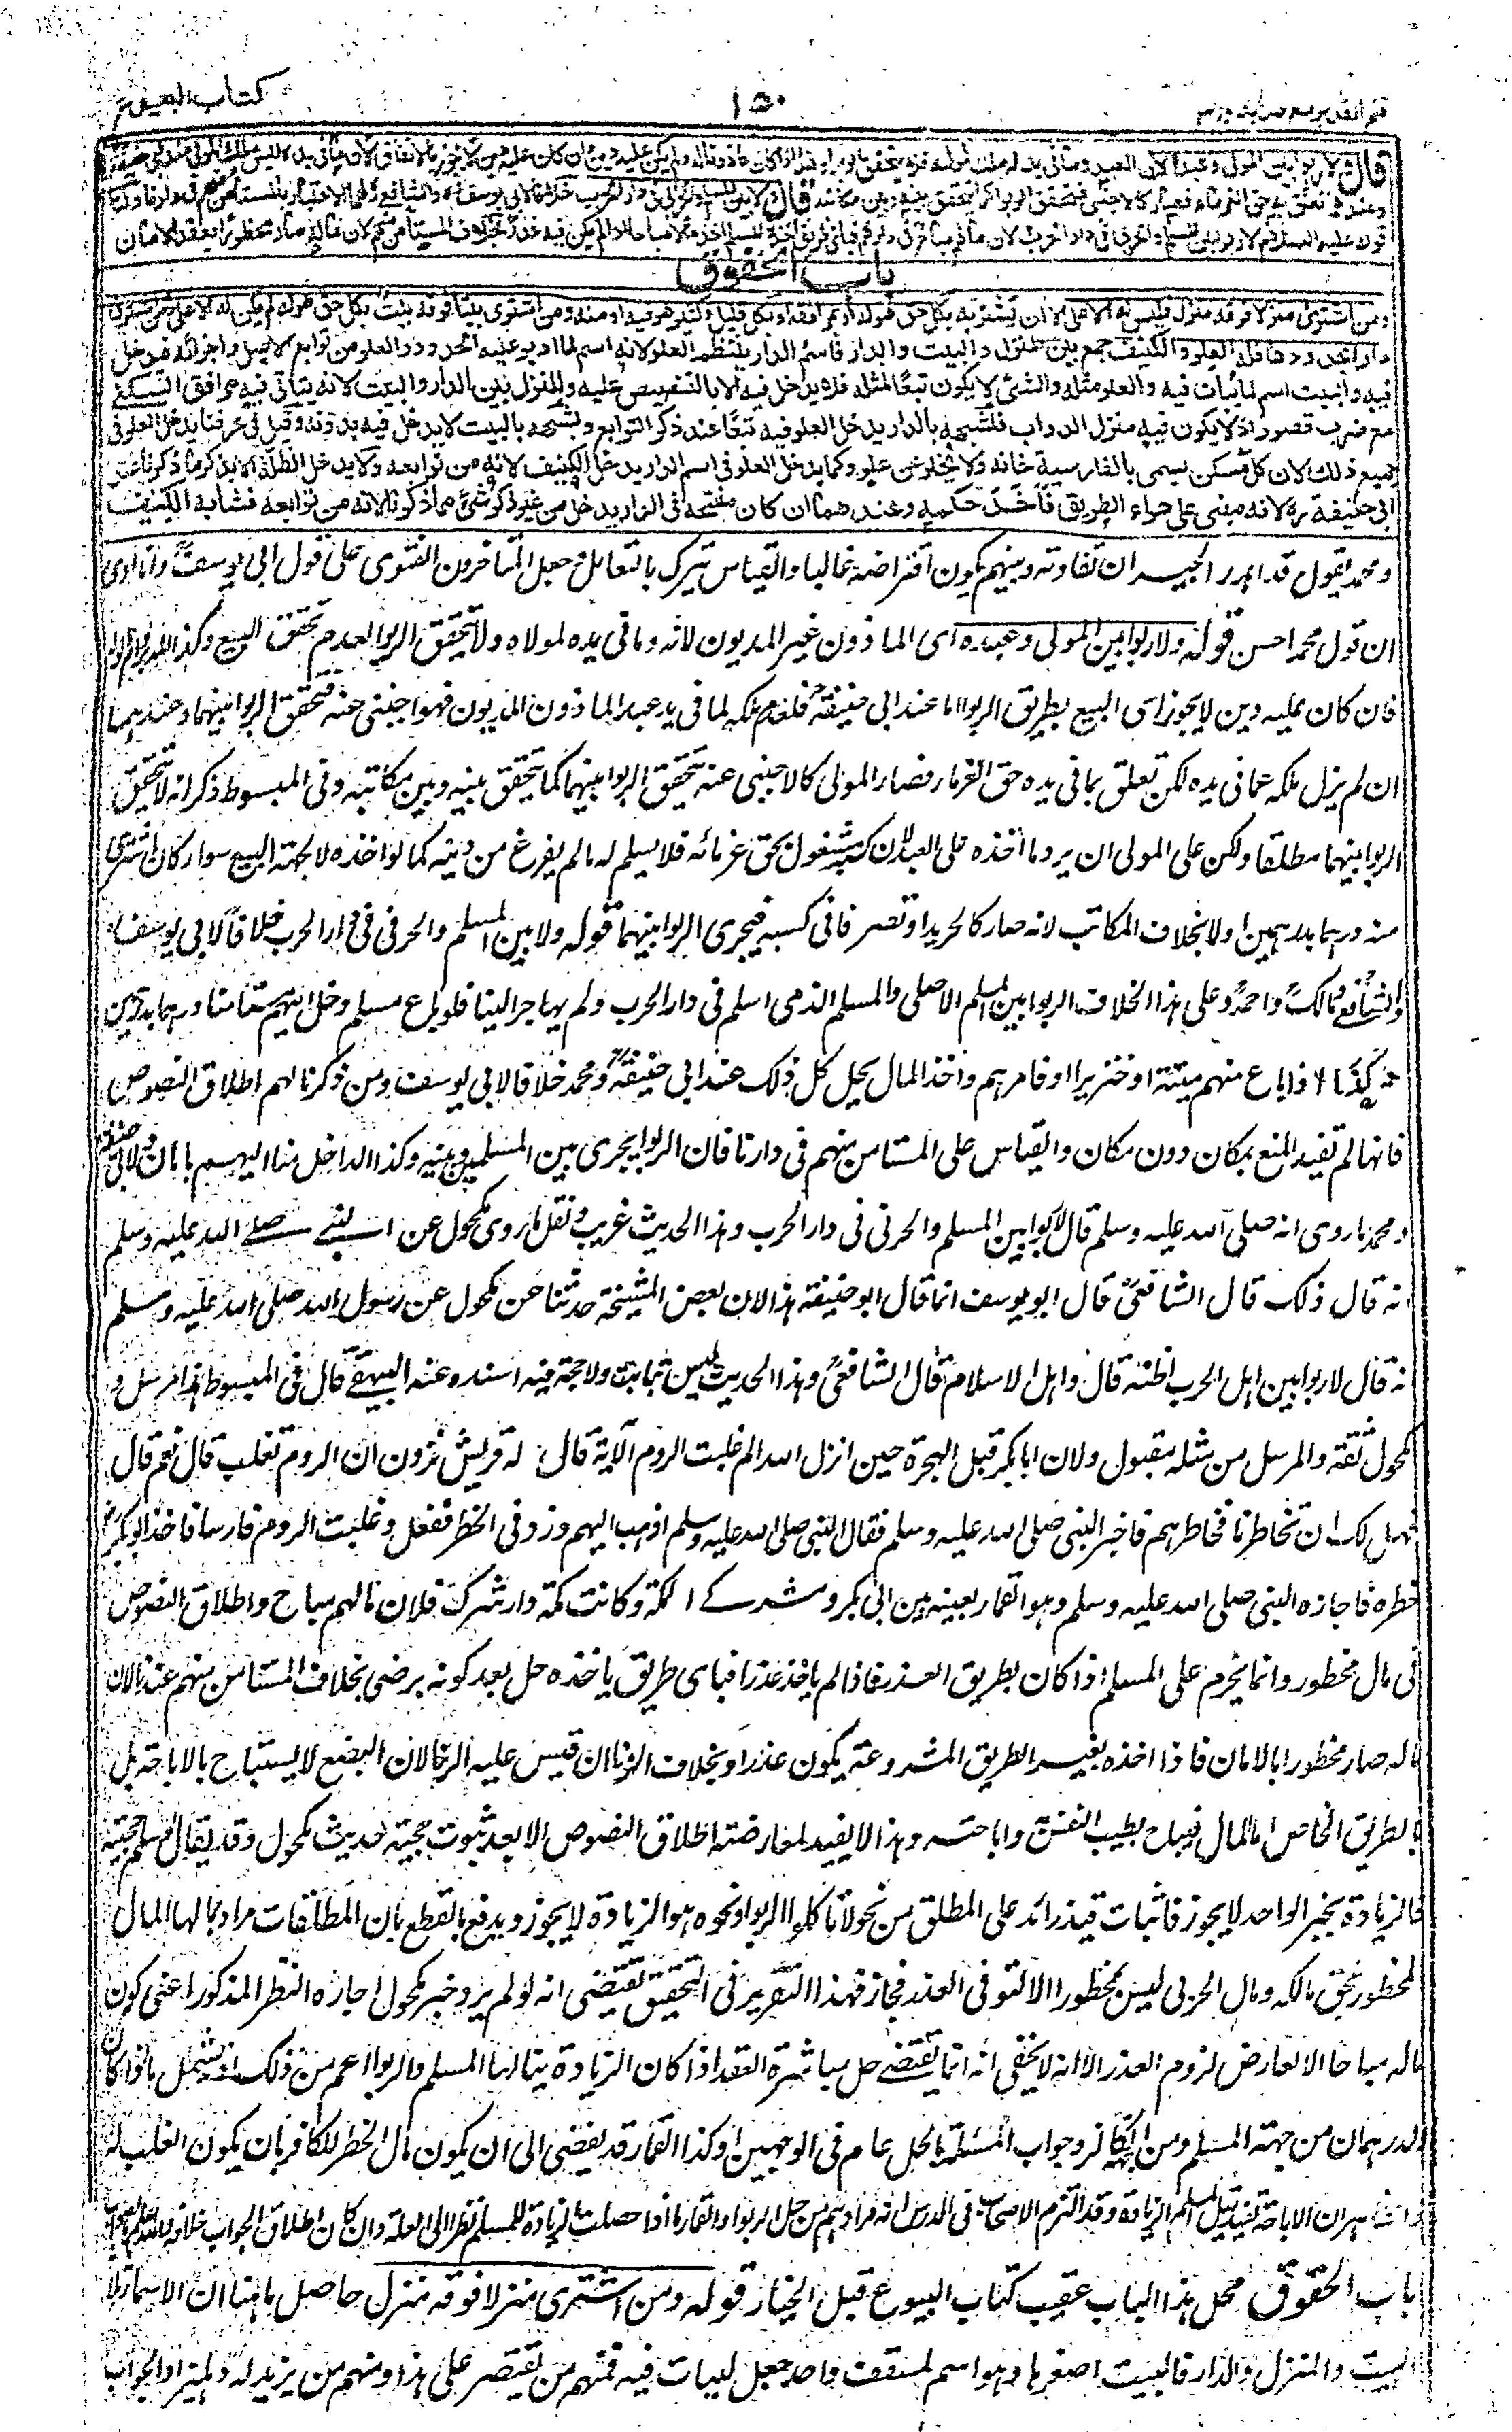 فتح القدير مع هدايه ج ٣ ١٥٠ كتاب البيوع
قال ولا ربوا بين المولى وعبده لان العبد وما في يده ملك لمولاه فلا يتحقق الربوا وهذا اذا كان ماذونا له ولم يكن عليه دين وان كان عليه دين لا يجوز بالاتفاق لان ما في يده ليس ملك المولى عند ابي حنيفة رح
وعندهما تعلق به حق الغرماء فصار كالاجنبي فيتحقق الربوا كما يتحقق بينه وبين مكاتبه قال ولا بين المسلم والحربي في دار الحرب خلافا لابي يوسف رح والشافعي رح لهما الاعتبار بالمستامن منهم في دارنا ولنا
قوله عليه السلام لا ربوا بين المسلم والحربي في دار الحرب لان مالهم مباح في دارهم فباي طريق اخذه المسلم اخذ مالا مباحا اذا لم يكن فيه غدر بخلاف المستامن منهم لان ماله صار محظورا بعقد الامان
باب الحقوق
ومن اشترى منزلا فوقه منزل فليس له الاعلى الا ان يشتريه بكل حق هو له او بمرافقه او بكل قليل وكثير هو فيه او منه ومن اشترى بيتا فوقه بيت بكل حق هو له لم يكن له الاعلى ومن اشترى
دارا بحدودها فله العلو والكنيف جمع بين المنزل والبيت والدار فاسم الدار ينتظم العلو لانه اسم لما ادير عليه الحدود والعلو من توابع الاصل واجزائه فيدخل
فيه والبيت اسم لما يبات فيه والعلو مثله والشئ لا يكون تبعا لمثله فلا يدخل فيه الا بالتنصيص عليه والمنزل بين الدار والبيت لانه يتاتى فيه مرافق السكنى
مع ضرب قصور اذ لا يكون فيه منزل الدواب فلشبهه بالدار يدخل العلو فيه تبعا عند ذكر التوابع ولشبهه بالبيت لا يدخل فيه بدونه وقيل في عرفنا يدخل العلو في
جميع ذلك لان كل مسكن يسمى بالفارسية خانه ولا يخلو عن علو وكما يدخل العلو في اسم الدار يدخل الكنيف لانه من توابعه ولا يدخل الظلة الا بذكر ما ذكرنا عند
ابي حنيفة رح لانه مبني على هواء الطريق فاخذ حكمه وعندهما ان كان مفتحه في الدار يدخل من غير ذكر شئ مما ذكرنا لانه من توابعه فشابه الكنيف
ومحمد يقول قد اهدر الجيران تفاوته وبينهم يكون اقتراضه غالبا والقياس يترك بالتعامل جعل المتاخرون الفتوى على قول ابي يوسف وانا ارى
ان قول محمد احسن قوله ولا ربوا بين المولى وعبده اى الماذون غير المديون لانه وما في يده لمولاه ولا يتحقق الربوا لعدم تحقق البيع وكذا المدبر وام الولد
فان كان عليه دين لا يجوز اى البيع بطريق الربوا اما عند ابي حنيفة فلعدم ملكه لما في يد عبده الماذون المديون فهو اجنبي عنه فتحقق الربوا بينهما وعندهما
ان لم يزل ملكه عما في يده لكن تعلق بما في يده حق الغرماء فصار المولى كالاجنبي عنه يتحقق الربوا بينهما كما يتحقق بينه وبين مكاتبه وفي المبسوط ذكر انه لا يتحقق
الربوا بينهما مطلقا ولكن على المولى ان يرد ما اخذه على العبد لان كسبه مشغول بحق غرمائه فلا يسلم له ما لم يفرغ من دينه كما لو اخذه لا بجهة البيع سواء كان اشترى
منه درهما بدرهمين اولا بخلاف المكاتب لانه صار كالحر يدا وتصرفا في كسبه فيجرى الربوا بينهما قوله ولا بين المسلم والحربي في دار الحرب خلافا لابي يوسف
والشافعي ومالك واحمد وعلى هذا الخلاف الربوا بين المسلم الاصلي والمسلم الذى اسلم في دار الحرب ولم يهاجر الينا فلو باع مسلم دخل اليهم مستامنا درهما بدرهمين
حل وكذا اذا باع منهم ميتة او خنزيرا او قامرهم واخذ المال يحل كل ذلك عند ابي حنيفة ومحمد خلافا لابي يوسف ومن ذكرنا لهم اطلاق النصوص
فانها لم تفيد المنع بمكان دون مكان والقياس على المستامن منهم في دارنا فان الربوا يجرى بين المسلم وبينه وكذا الداخل منا اليهم بامان ولابي حنيفة
ومحمد ما روى انه صلى الله عليه وسلم قال لا ربوا بين المسلم والحربي في دار الحرب وهذا الحديث غريب ونقل ما روى مكحول عن النبي صلى الله عليه وسلم
انه قال ذلك قال الشافعي قال ابو يوسف انما قال ابو حنيفة هذا لان بعض المشيخة حدثنا عن مكحول عن رسول الله صلى الله عليه وسلم
انه قال لا ربوا بين اهل الحرب اظنه قال واهل الاسلام قال الشافعي وهذا الحديث ليس بثابت ولا حجة فيه اسنده عنه البيهقي قال في المبسوط هذا مرسل و
مكحول ثقة والمرسل من مثله مقبول ولان ابا بكر قبل الهجرة حين انزل الله الم غلبت الروم الآية قال له قريش ترون ان الروم تغلب قال نعم قال
فهل لك ان تخاطرنا فخاطرهم فاخبر النبي صلى الله عليه وسلم فقال النبي صلى الله عليه وسلم اذهب اليهم وزد في الخطر ففعل وغلبت الروم فارسا فاخذ ابو بكر
خطره فاجازه النبي صلى الله عليه وسلم وهو القمار بعينه بين ابي بكر ومشركى مكة وكانت مكة دار شرك فلان مالهم مباح واطلاق النصوص
في مال محظور وانما يحرم على المسلم اذا كان بطريق الغدر فاذا لم ياخذ غدرا فباى طريق ياخذه حل بعد كونه برضى بخلاف المستامن منهم عندنا لان
ماله صار محظورا بالامان فاذا اخذه بغير الطريق المشروعة يكون غدرا وبخلاف الزنا ان قيس عليه الربا لان البضع لا يستباح بالاباحة بل
بالطريق الخاص اما المال فيباح بطيب النفس به واباحته وهذا لا يفيد لمعارضة اطلاق النصوص الا بعد ثبوت حجية حديث مكحول وقد يقال لو سلم حجيته
فالزيادة بخبر الواحد لا يجوز فاثبات قيد زائد على المطلق من نحو لا تاكلوا الربوا ونحوه هو الزيادة لا يجوز ويدفع بالقطع بان المطلقات مراد بمحالها المال
المحظور بحق مالكه ومال الحربي ليس بمحظور الا لتوقى الغدر فجاز فهذا التقرير في التحقيق يقتضى انه لو لم يرد خبر مكحول اجازه النظر المذكور اعنى كون
ماله مباحا الا لعارض لزوم الغدر الا انه لا يخفى انه انما يقتضى حل مباشرة العقد اذا كان الزيادة ينالها المسلم والربوا اعم من ذلك اذ يشمل ما اذا كان
الدرهمان من جهة المسلم ومن جهة الكافر وجواب المسئلة بالحل عام في الوجهين وكذا القمار قد يفضى الى ان يكون مال الخطر للكافر بان يكون الغلب له
فالظاهر ان الاباحة تفيد نيل المسلم الزيادة وقد التزم الاصحاب في الدرس ان مرادهم من حل الربوا والقمار ما اذا حصلت الزيادة للمسلم نظرا الى العلة وان كان اطلاق الجواب خلافه والله اعلم بالصواب
باب الحقوق محل هذا الباب عقيب كتاب البيوع قبل الخيار قوله ومن اشترى منزلا فوقه منزل حاصل ما هنا ان الاسماء ثلاثة
البيت والمنزل والدار فالبيت اصغرها وهو اسم لمسقف واحد جعل ليبات فيه فمنهم من يقتصر على هذا ومنهم من يزيد له دهليزا والجواب